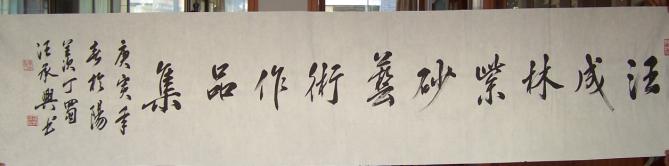 汪成林紫砂藝術作品集
庚寅年
春於陽
羨丁蜀
汪承興书